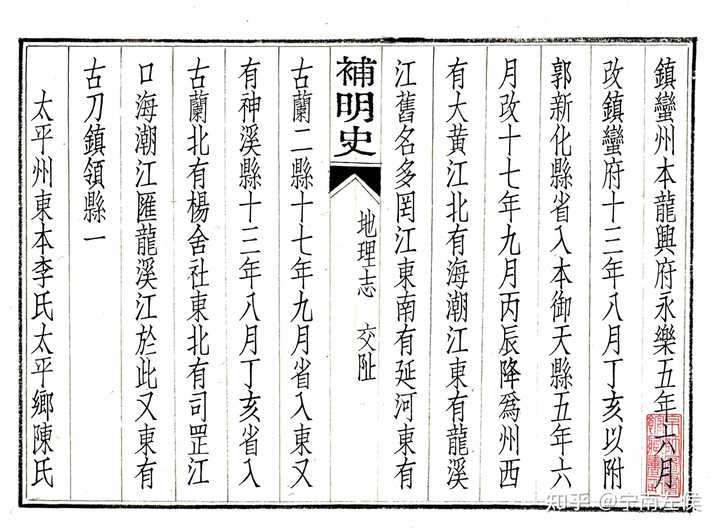 鎮蠻州本龍興府永樂五年六月
改鎮蠻府十三年八月丁亥以附
郭新化縣省入本御天縣五年六
月改十七年九月丙辰降爲州西
有大黃江北有海潮江東有龍溪
江舊名多罔江東南有延河東有
補明史
地理志 交阯
古蘭二縣十七年九月省入東又
有神溪縣十三年八月丁亥省入
古蘭北有楊舍社東北有司罡江
口海潮江匯龍溪江於此又東有
古刀鎮領縣一
太平州東本李氏太平鄉陳氏
知乎 @宁南左侯